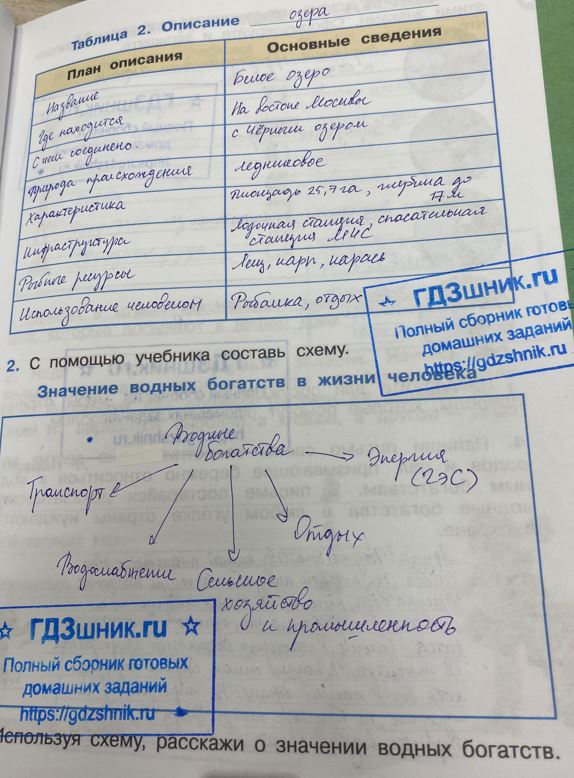 Таблица 2. Описание озера
План описания Основные сведения
Название Белое озеро
Где находится На востоке Москвы
С чем соединено с Чёрным озером
Природа происхождения ледниковое
Характеристика Площадь 25,7 га, глубина до 17 м
Инфраструктура Лодочная станция, спасательная
станция МЧС
Рыбные ресурсы Лещ, карп, карась
Использование человеком Рыбалка, отдых
ГДЗшник.ru
Полный сборник готовых
домашних заданий
https://gdzshnik.ru
2. С помощью учебника составь схему.
Значение водных богатств в жизни человека
Водные
богатства
Энергия
(ГЭС)
Транспорт
Отдых
Водоснабжение
Сельское
хозяйство
и промышленность
ГДЗшник.ru
Полный сборник готовых
домашних заданий
https://gdzshnik.ru
Используя схему, расскажи о значении водных богатств.